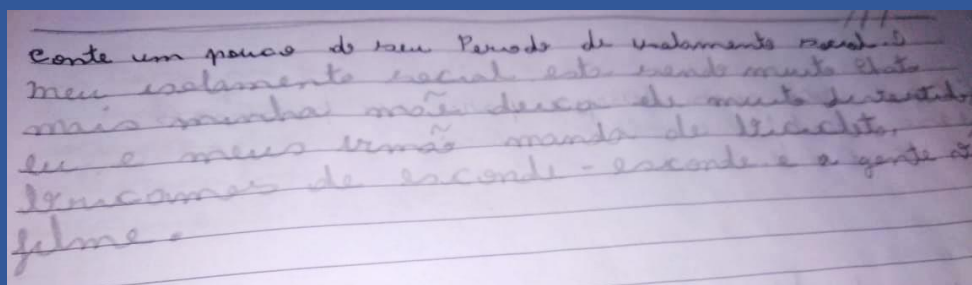 Conte um pouco do seu Periodo de isolamento social.
meu isolamento social esta sendo muito chato
mais minha mãe deixa ele muito divertido
eu e meus irmão manda de bicicleta,
brucamos de esconde-esconde e a gente
filme.